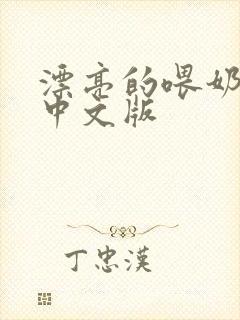 漂亮的喂奶
中文版
丁忠漢